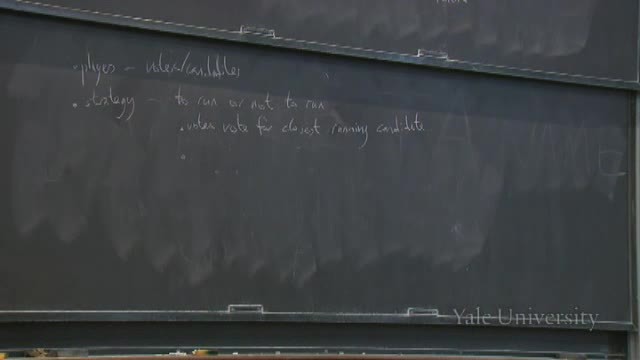 . players - voters/candidates
. strategy - to run or not to run
. voters vote for closest running candidate
.
Yale University